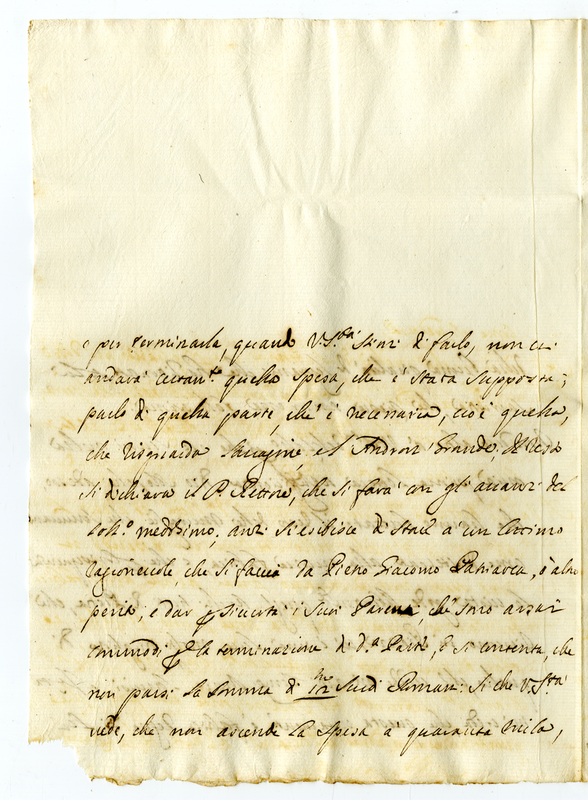 e per terminarla, quando V.S.Ill.ma stimi di farlo, non ci
andarà certam.te quella spesa, che è stata supposta;
parlo di quella parte, che è necessaria, cioè quella,
che risguarda e l'Androni Grande; Il resto
si dichiara il P. Rettore, che si farà con gli avanzi del
Coll.o medesimo; anzi si esibisce di stare a un Cottimo
ragionevole, che si faccia da Pietro Giacomo Patriarca, ò altro
perito; e dar p sicurtà i suoi Parenti, che sono assai
commodi p la terminazione di d.a Parte, e si contenta, che
non passi la somma di Scudi Romani: Si che V.S.Ill.ma
vede, che non ascende la spesa a' quaranta mila,